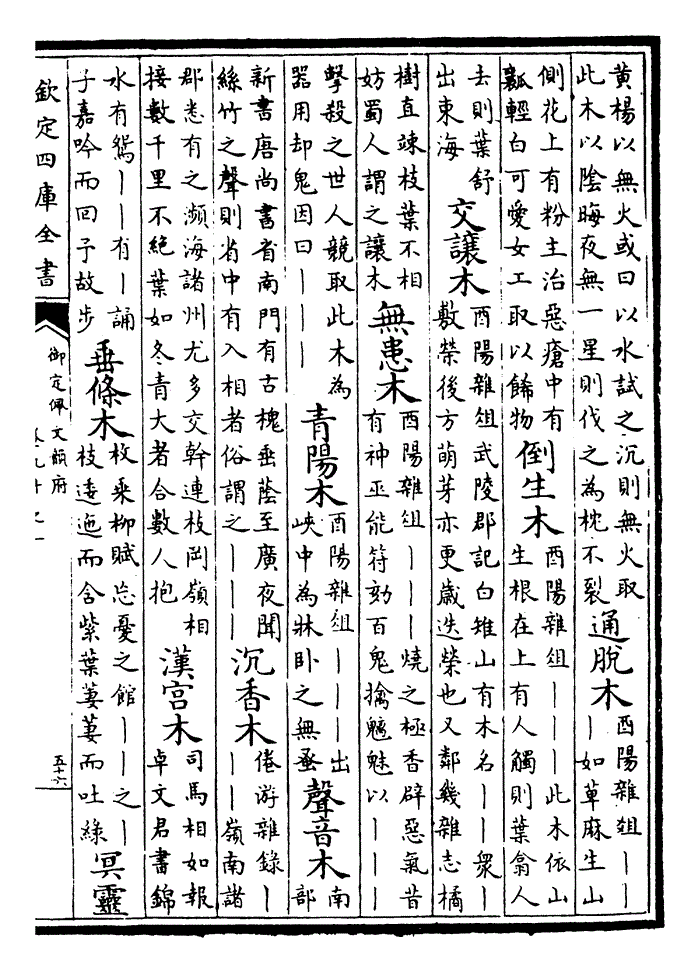 黃楊以無火或曰以水試之沉則無火取
此木以陰晦夜無一星則伐之為枕不裂
通脫木
酉陽雜俎｜｜
｜如萆麻生山
側花上有粉主治惡瘡中有
瓤輕白可愛女工取以餙物
倒生木
酉陽雜俎｜｜｜此木依山
生根在上有人觸則葉翕人
去則葉舒
出東海
交讓木
酉陽雜俎武陵郡記白雉山有木名｜｜衆｜
敷榮後方萌芽亦更歲迭榮也又鄰幾雜志橘
樹直竦枝葉不相
妨蜀人謂之讓木
無患木
酉陽雜俎｜｜｜燒之極香辟惡氣昔
有神巫能符劾百鬼擒魑魅以｜｜｜
擊殺之世人競取此木為
器用却鬼因曰｜｜｜
青陽木
酉陽雜俎｜｜｜出
峽中為牀卧之無蚤
聲音木
南
部
新書唐尚書省南門有古槐垂蔭至廣夜聞
絲竹之聲則省中有入相者俗謂之｜｜｜
沉香木
倦游雜錄｜
｜｜嶺南諸
郡悉有之瀕海諸州尤多交幹連枝岡嶺相
接數千里不絕葉如冬青大者合數人抱
漢宮木
司馬相如報
卓文君書錦
水有鴛｜｜有｜誦
子嘉吟而回予故步
垂條木
枚乘柳賦忘憂之館｜｜之｜
枝逶迤而含紫葉萋萋而吐綠
冥靈
欽定四庫全書
御定佩文韻府
五十六